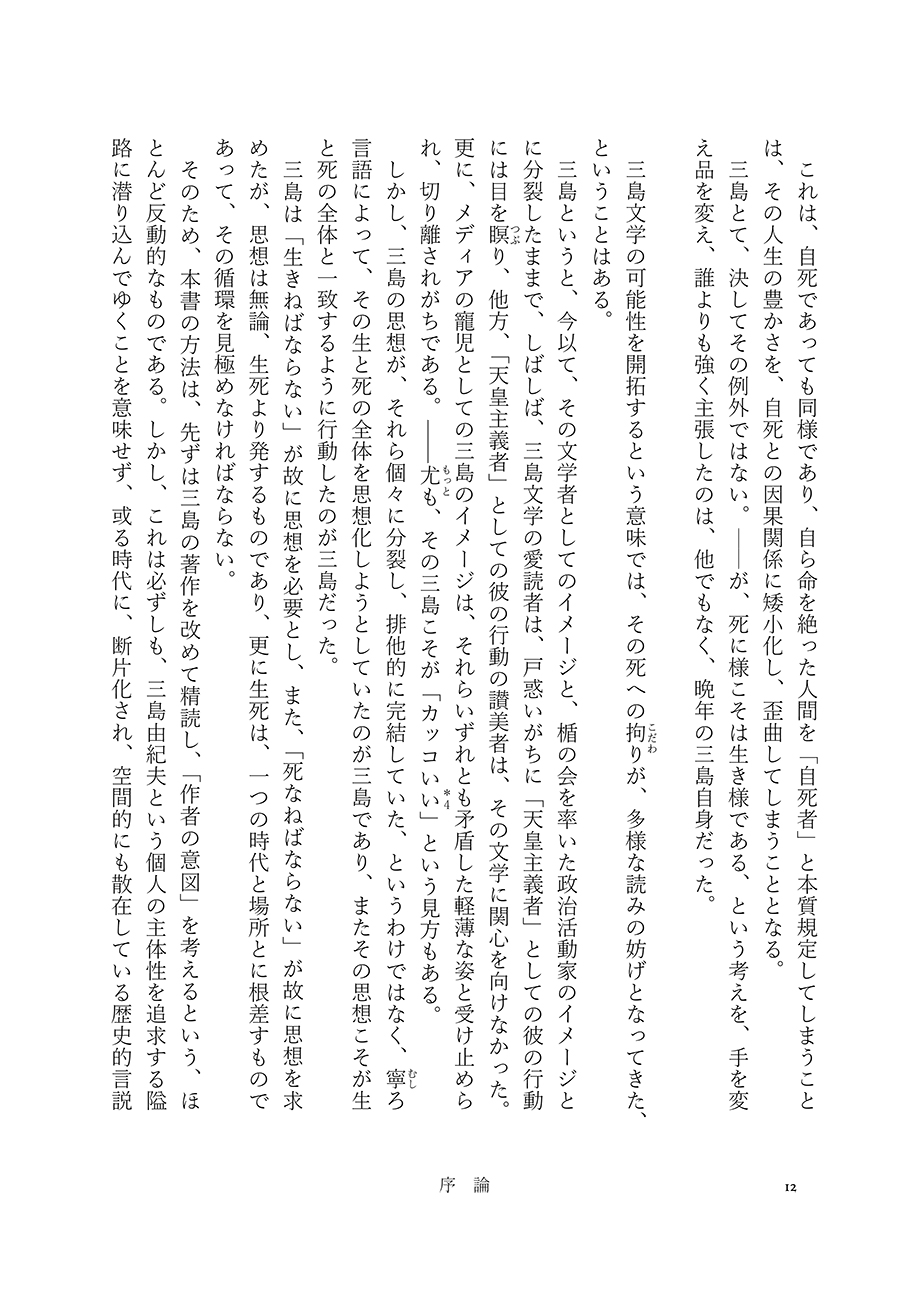 これは、自死であっても同様であり、自ら命を絶った人間を「自死者」と本質規定してしまうこと
は、その人生の豊かさを、自死との因果関係に矮小化し、歪曲してしまうこととなる。
三島とて、決してその例外ではない。――が、死に様こそは生き様である、という考えを、手を変
え品を変え、誰よりも強く主張したのは、他でもなく、晩年の三島自身だった。
三島文学の可能性を開拓するという意味では、その死への拘こだわりが、多様な読みの妨げとなってきた、
ということはある。
三島というと、今以て、その文学者としてのイメージと、楯の会を率いた政治活動家のイメージと
に分裂したままで、しばしば、三島文学の愛読者は、戸惑いがちに「天皇主義者」としての彼の行動
には目を瞑つぶり、他方、「天皇主義者」としての彼の行動の讃美者は、その文学に関心を向けなかった。
更に、メディアの寵児としての三島のイメージは、それらいずれとも矛盾した軽薄な姿と受け止めら
れ、切り離されがちである。――尤もっとも、その三島こそが「カッコいい*4」という見方もある。
しかし、三島の思想が、それら個々に分裂し、排他的に完結していた、というわけではなく、寧むしろ
言語によって、その生と死の全体を思想化しようとしていたのが三島であり、またその思想こそが生
と死の全体と一致するように行動したのが三島だった。
三島は「生きねばならない」が故に思想を必要とし、また、「死なねばならない」が故に思想を求
めたが、思想は無論、生死より発するものであり、更に生死は、一つの時代と場所とに根差すもので
あって、その循環を見極めなければならない。
そのため、本書の方法は、先ずは三島の著作を改めて精読し、「作者の意図」を考えるという、ほ
とんど反動的なものである。しかし、これは必ずしも、三島由紀夫という個人の主体性を追求する隘
路に潜り込んでゆくことを意味せず、或る時代に、断片化され、空間的にも散在している歴史的言説
序論
12